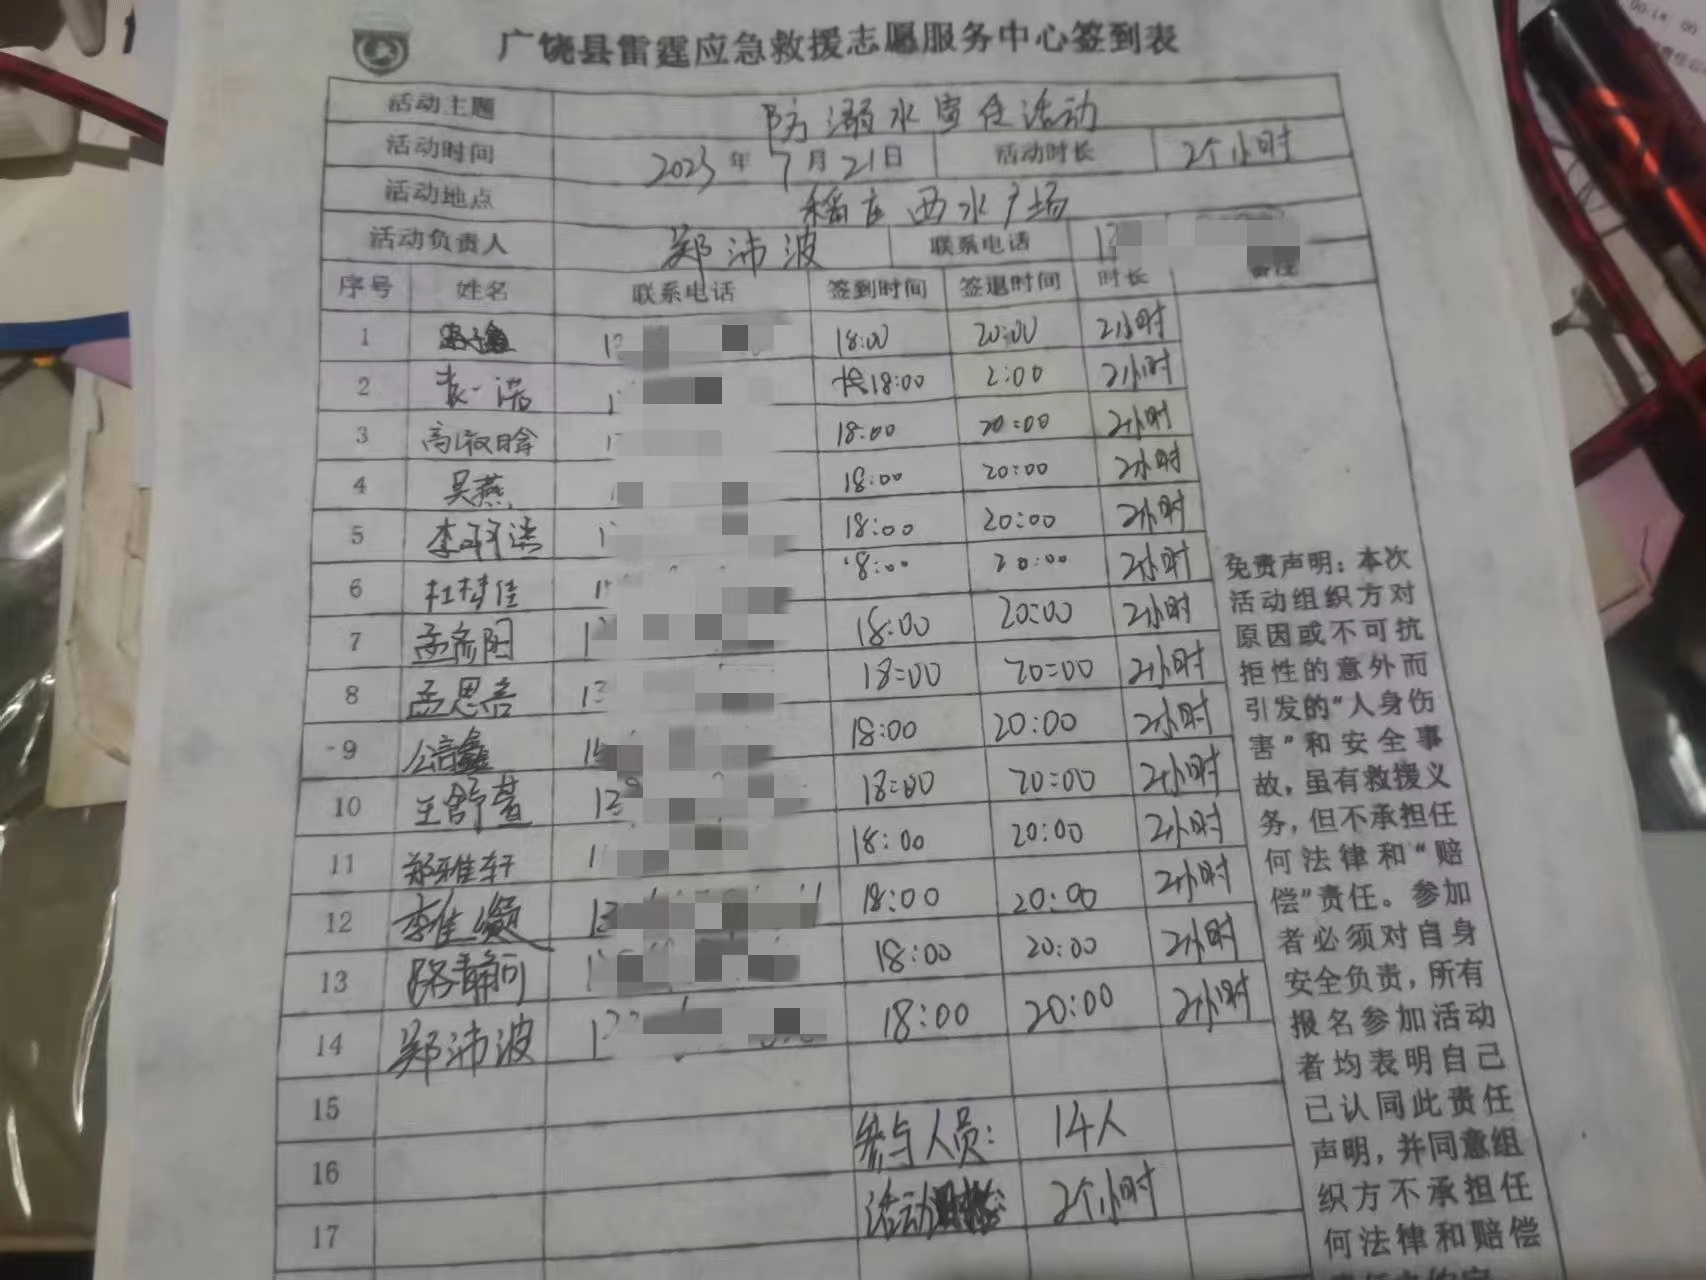 广饶县雷霆应急救援志愿服务中心签到表
活动主题 防溺水宣传活动
活动时间 2023年7月21日 活动时长 2个小时
活动地点 稻庄西水广场
活动负责人 郑沛波 联系电话 1
序号 姓名 联系电话 签到时间 签退时间 时长 备注
1 18:00 20:00 2小时
2 袁一诺 1 18:00 2:00 2小时
3 18:00 20:00 2小时
4 吴燕 18:00 20:00 2小时
5 18:00 20:00 2小时
6 杜梓佳 18:00 20:00 2小时
7 孟彦阳 1 18:00 20:00 2小时
8 孟思言 13 18:00 20:00 2小时
9 18:00 20:00 2小时
10 王舒萱 18:00 20:00 2小时
11 郑雅轩 1 18:00 20:00 2小时
12 13 18:00 20:00 2小时
13 路静 18:00 20:00 2小时
14 郑沛波 1 18:00 20:00 2小时
15
参与人员: 14人
16
活动 2个小时
17
免责声明：本次
活动组织方对
原因或不可抗
拒性的意外而
引发的“人身伤
害”和安全事
故，虽有救援义
务，但不承担任
何法律和“赔
偿”责任。参加
者必须对自身
安全负责，所有
报名参加活动
者均表明自己
已认同此责任
声明，并同意组
织方不承担任
何法律和赔偿